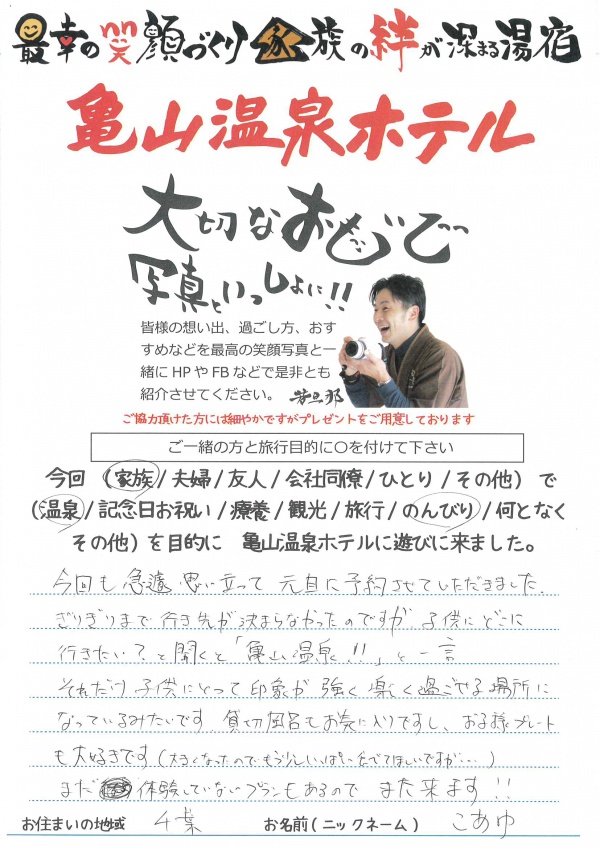 最幸の笑顔づくり家族の絆が深まる湯宿
亀山温泉ホテル
大切なおもいで
写真といっしょに!!
皆様の想い出、過ごし方、おす
すめなどを最高の笑顔写真と一
緒にHPやFBなどで是非とも
紹介させてください。 若旦那
ご協力頂けた方には細やかですがプレゼントをご用意しております
ご一緒の方と旅行目的に〇を付けて下さい
今回 (家族/夫婦/友人/会社同僚/ひとり/その他) で
(温泉/記念日お祝い/療養/観光/旅行/のんびり/何となく
その他) を目的に 亀山温泉ホテルに遊びに来ました。
今回も 急遽 思い立って 元旦に予約させていただきました.
ぎりぎりまで 行き先が決まらなかったのですが 子供にどこに
行きたい?と聞くと「亀山温泉!!」と一言
それだけ 子供にとって 印象が 強く 楽しく 過ごせる 場所に
なっているみたいです. 貸切風呂もお気に入りですし、お子様プレート
も大好きです(大きくなったので もう少しいっぱい たべてほしいですが…)
まだ 体験していないプランもあるので また 来ます!!
お住まいの地域 千葉 お名前(ニックネーム) こあゆ